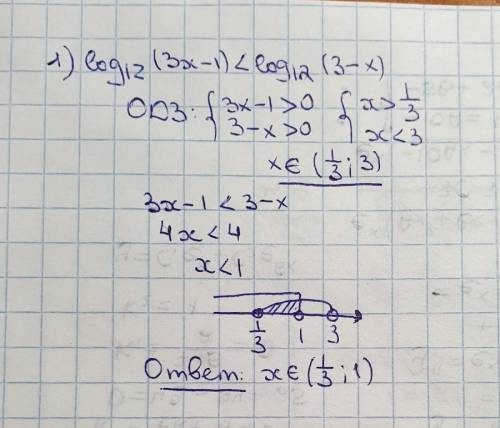 1) log₁₂ (3x−1) < log₁₂ (3−x)
ОДЗ: { 3x−1>0 { x>1/3
3−x>0 x<3
x∈(1/3; 3)
3x−1 < 3−x
4x<4
x<1
1/3 1 3
Ответ: x∈(1/3; 1)